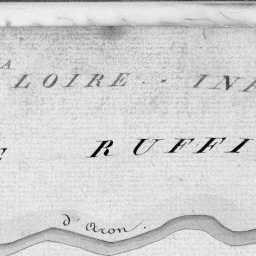 A
LOIRE . . INF
RUFFI
d'Aron.